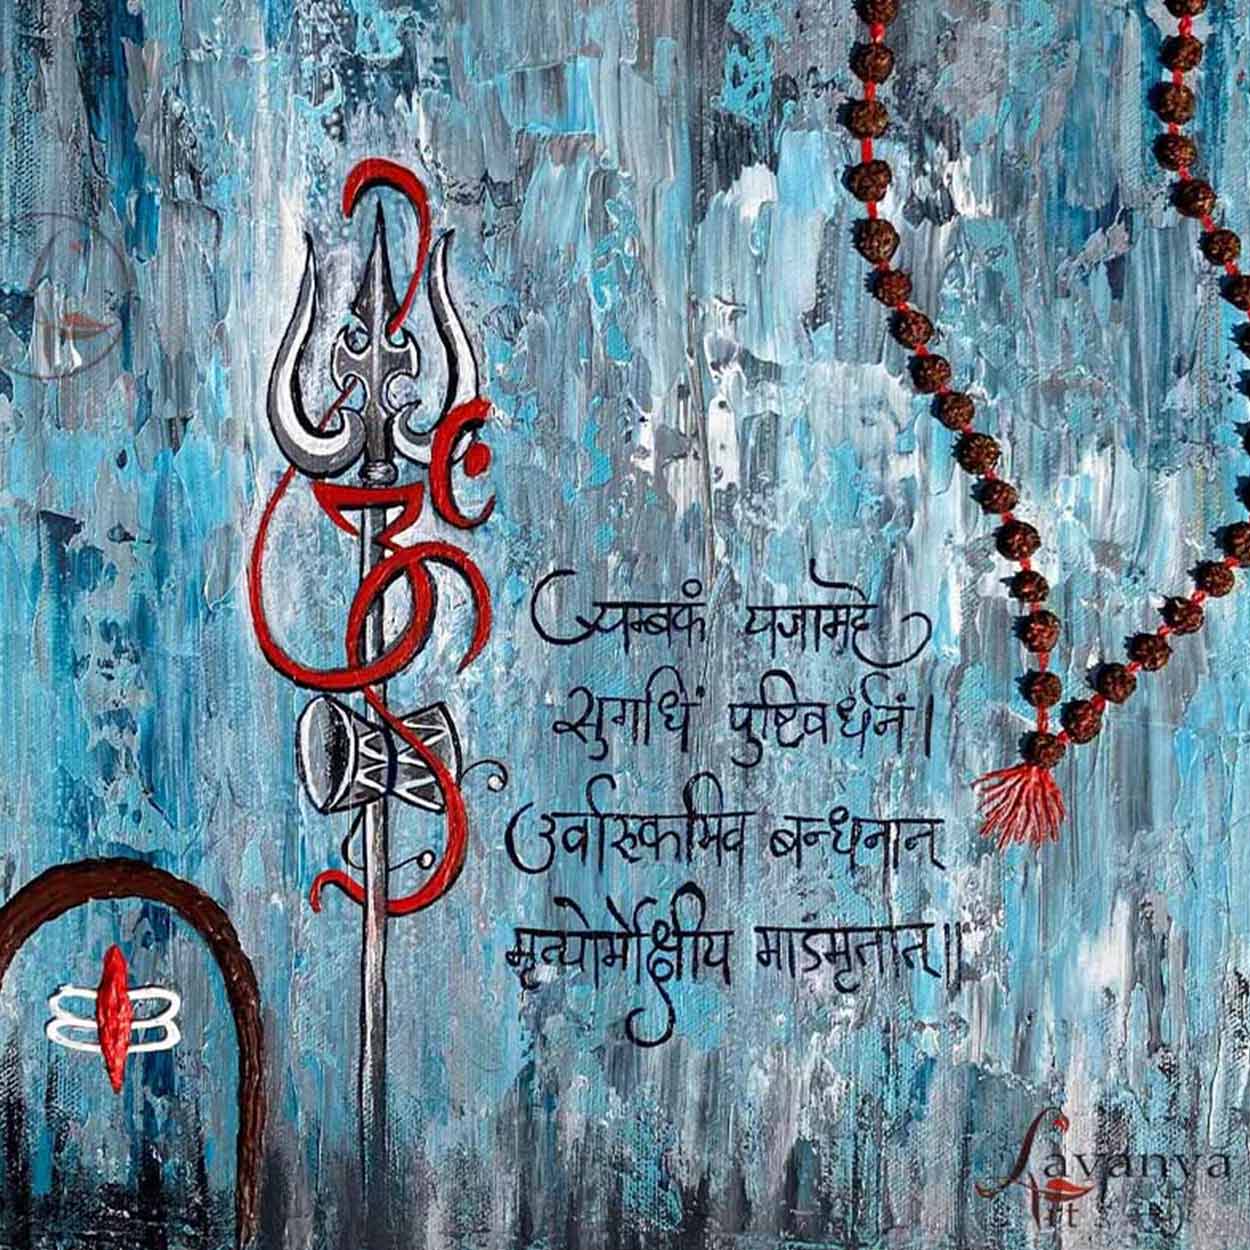 त्र्यम्बकं यजामहे
सुगधिं पुष्टिवर्धनं।
उर्वारुकमिव बन्धनान्
मृत्योर्मोक्षीय माऽमृतात्॥
Lavanya
Art